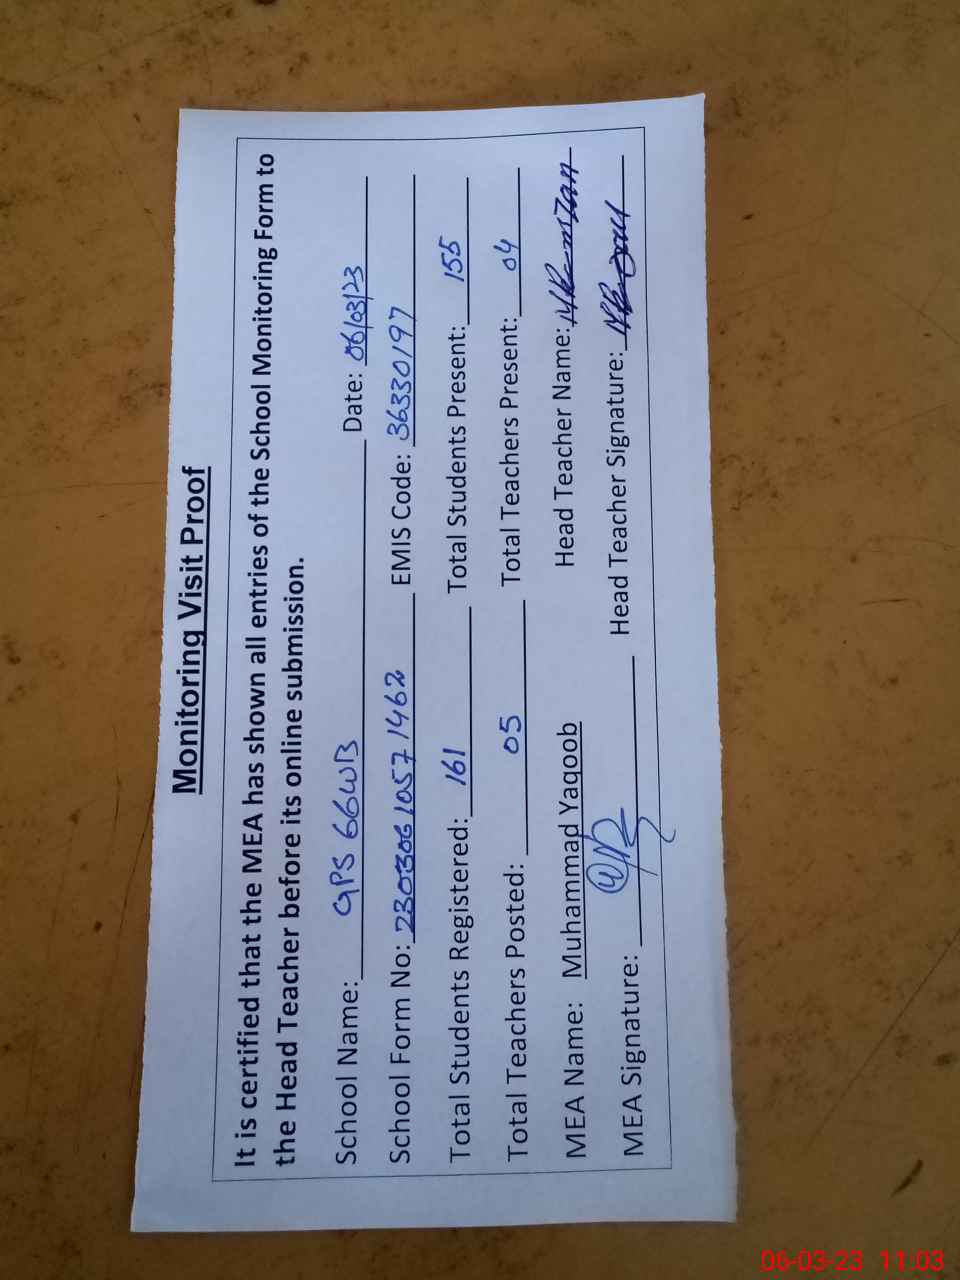 Monitoring Visit Proof
It is certified that the MEA has shown all entries of the School Monitoring Form to
the Head Teacher before its online submission.
School Name: GPS 66WB Date: 06/03/23
School Form No: 23030610571462 EMIS Code: 36330197
Total Students Registered: 161 Total Students Present: 155
Total Teachers Posted: 05 Total Teachers Present: 04
MEA Name: Muhammad Yaqoob Head Teacher Name:
MEA Signature: Head Teacher Signature:
06-03-23 11:03